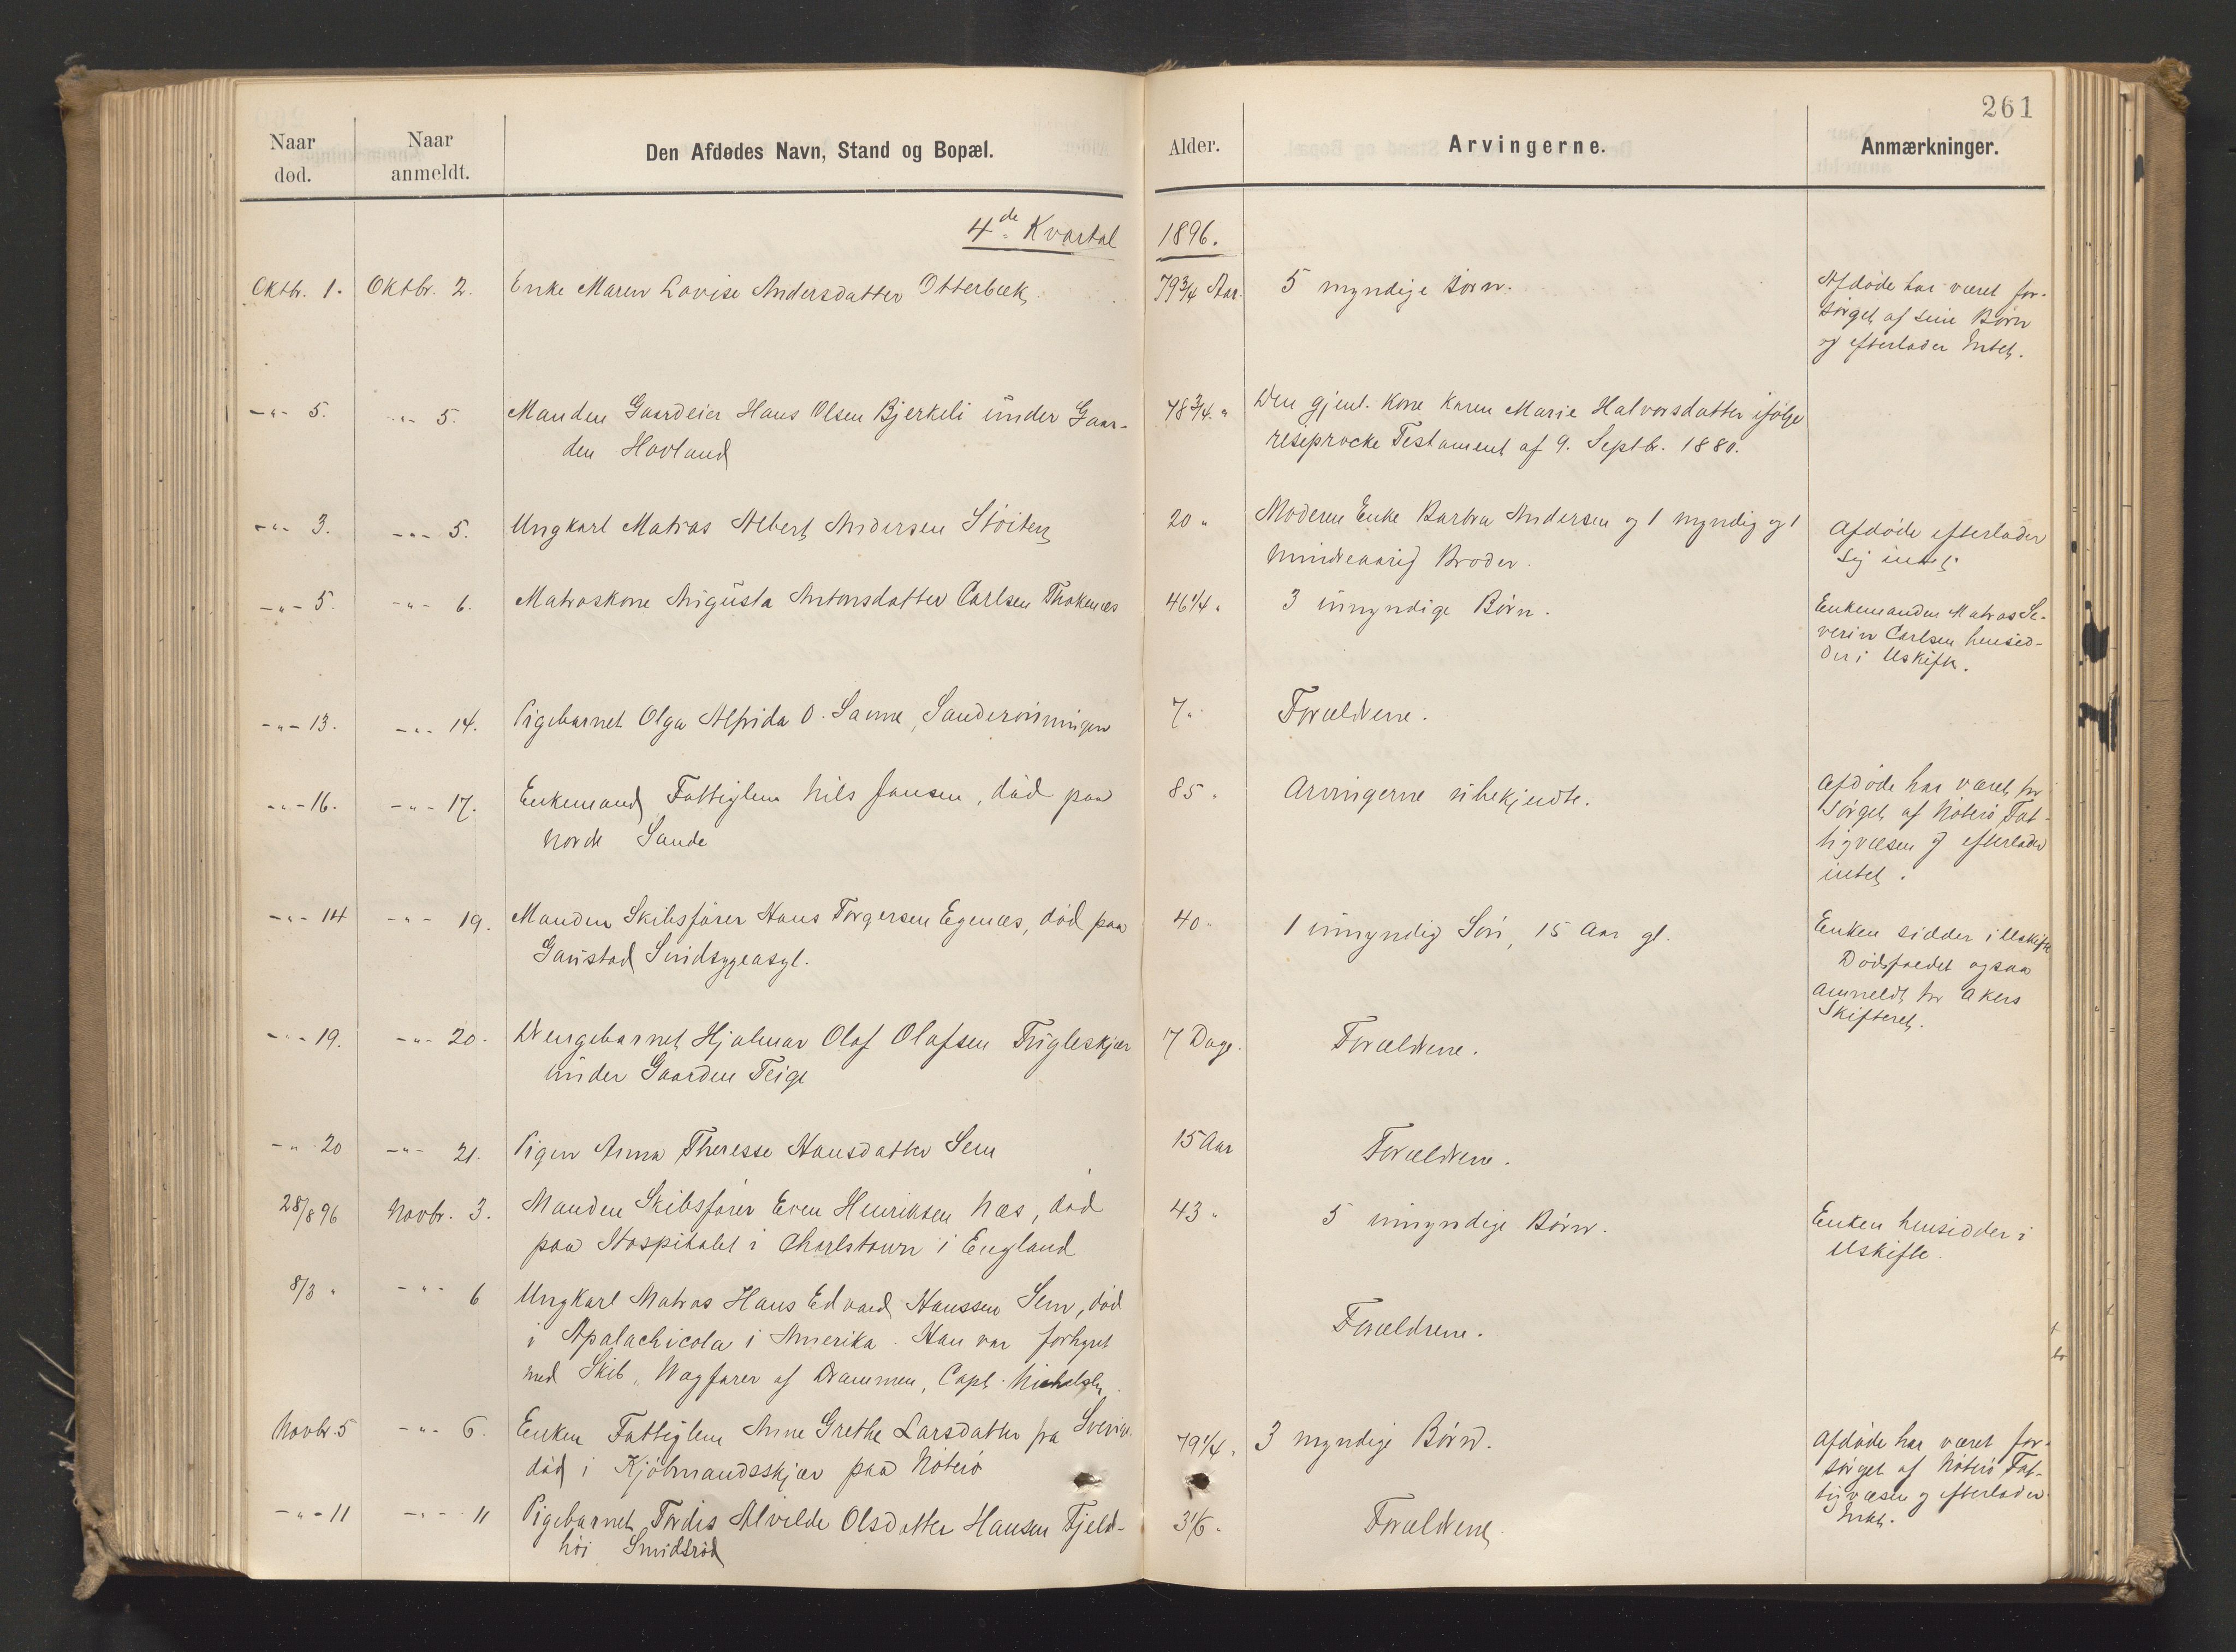 261
Naar død.
Naar anmeldt.
Den Afdødes Navn, Stand og Bopæl.
Alder.
Arvingerne.
Anmærkninger.
4de Kvartal 1896.
Oktb. 1. Oktbr. 2. Enke Maren Lovise Andersdatter Otterbæk 79 3/4 Aar. 5 myndige Børn.
Afdøde har været for-
sørget af sine Børn
og efterlader Intet.
-"- 5. -"- 5. Manden Gaardeier Hans Olsen Bjerkeli under Gaar- 78 3/4 " Den gjenl. Kone Karen Marie Halvorsdatter ifølge
den Havland resiprocke Testament af 9. Septbr. 1880.
-"- 3. -"- 5. Ungkarl Matros Albert Andersen Støiten 20 " Moderen Enke Barbra Andersen og 1 myndig og 1
mindreaarig Broder.
Afdøde efterlader
sig intet.
-"- 5. -"- 6. Matroskone Augusta Antonsdatter Carlsen Thokenæs 46 1/4 " 3 umyndige Børn.
Enkemanden Matros Se-
verin Carlsen hensid-
der i Uskifte.
-"- 13. -"- 14. Pigebarnet Olga Alfrida O. Sanne, Sanderønningen 7 " Forældrene.
-"- 16. -"- 17. Enkemand Fattiglem Nils Jansen, død paa 85 " Arvingerne ubekjendte.
Nordre Sande
Afdøde har været for
sørget af Nøterø Fat-
tigvæsen og efterlader
intet.
-"- 14 -"- 19. Manden Skibsfører Hans Torgersen Egenæs, død paa 40 " 1 umyndig Søn, 15 Aar gl.
Gaustad Sindsygeasyl.
Enken sidder i Uskifte
Dødsfaldet ogsaa
anmeldt for Akers
Skifteret.
-"- 19. -"- 20. Drengebarnet Hjalmar Olaf Olafsen Fugleskjær 17 Dage. Forældrene.
under Gaarden Teige
-"- 20 -"- 21. Pigen Anna Theresse Hansdatter Sem 15 Aar Forældrene.
28/8 96 Novbr. 3. Manden Skibsfører Even Henriksen Næs, død 43 " 5 umyndige Børn.
paa Hospitalet i Charlstown i England
Enken hensidder i
Uskifte.
8/3 " -"- 6 Ungkarl Matros Hans Edvard Hanssen Sem, død
i Apalachicola i Amerika. Han var forhyret Forældrene.
med Skib "Vagfarer af Drammen, Capt.
Novbr. 5 -"- 6. Enken Fattiglem Anne Grethe Larsdatter fra 79 1/4 " 3 myndige Børn.
død i Kjøbmandsskjær paa Nøterø
Afdøde har været for-
sørget af Nøterø Fat-
tigvæsen og efterlader
Intet.
-"- 11 -"- 11 Pigebarnet Tordis Alvilde Olsdatter Hansen Fjeld- 3 1/6 " Forældrene.
høi Smidsrød